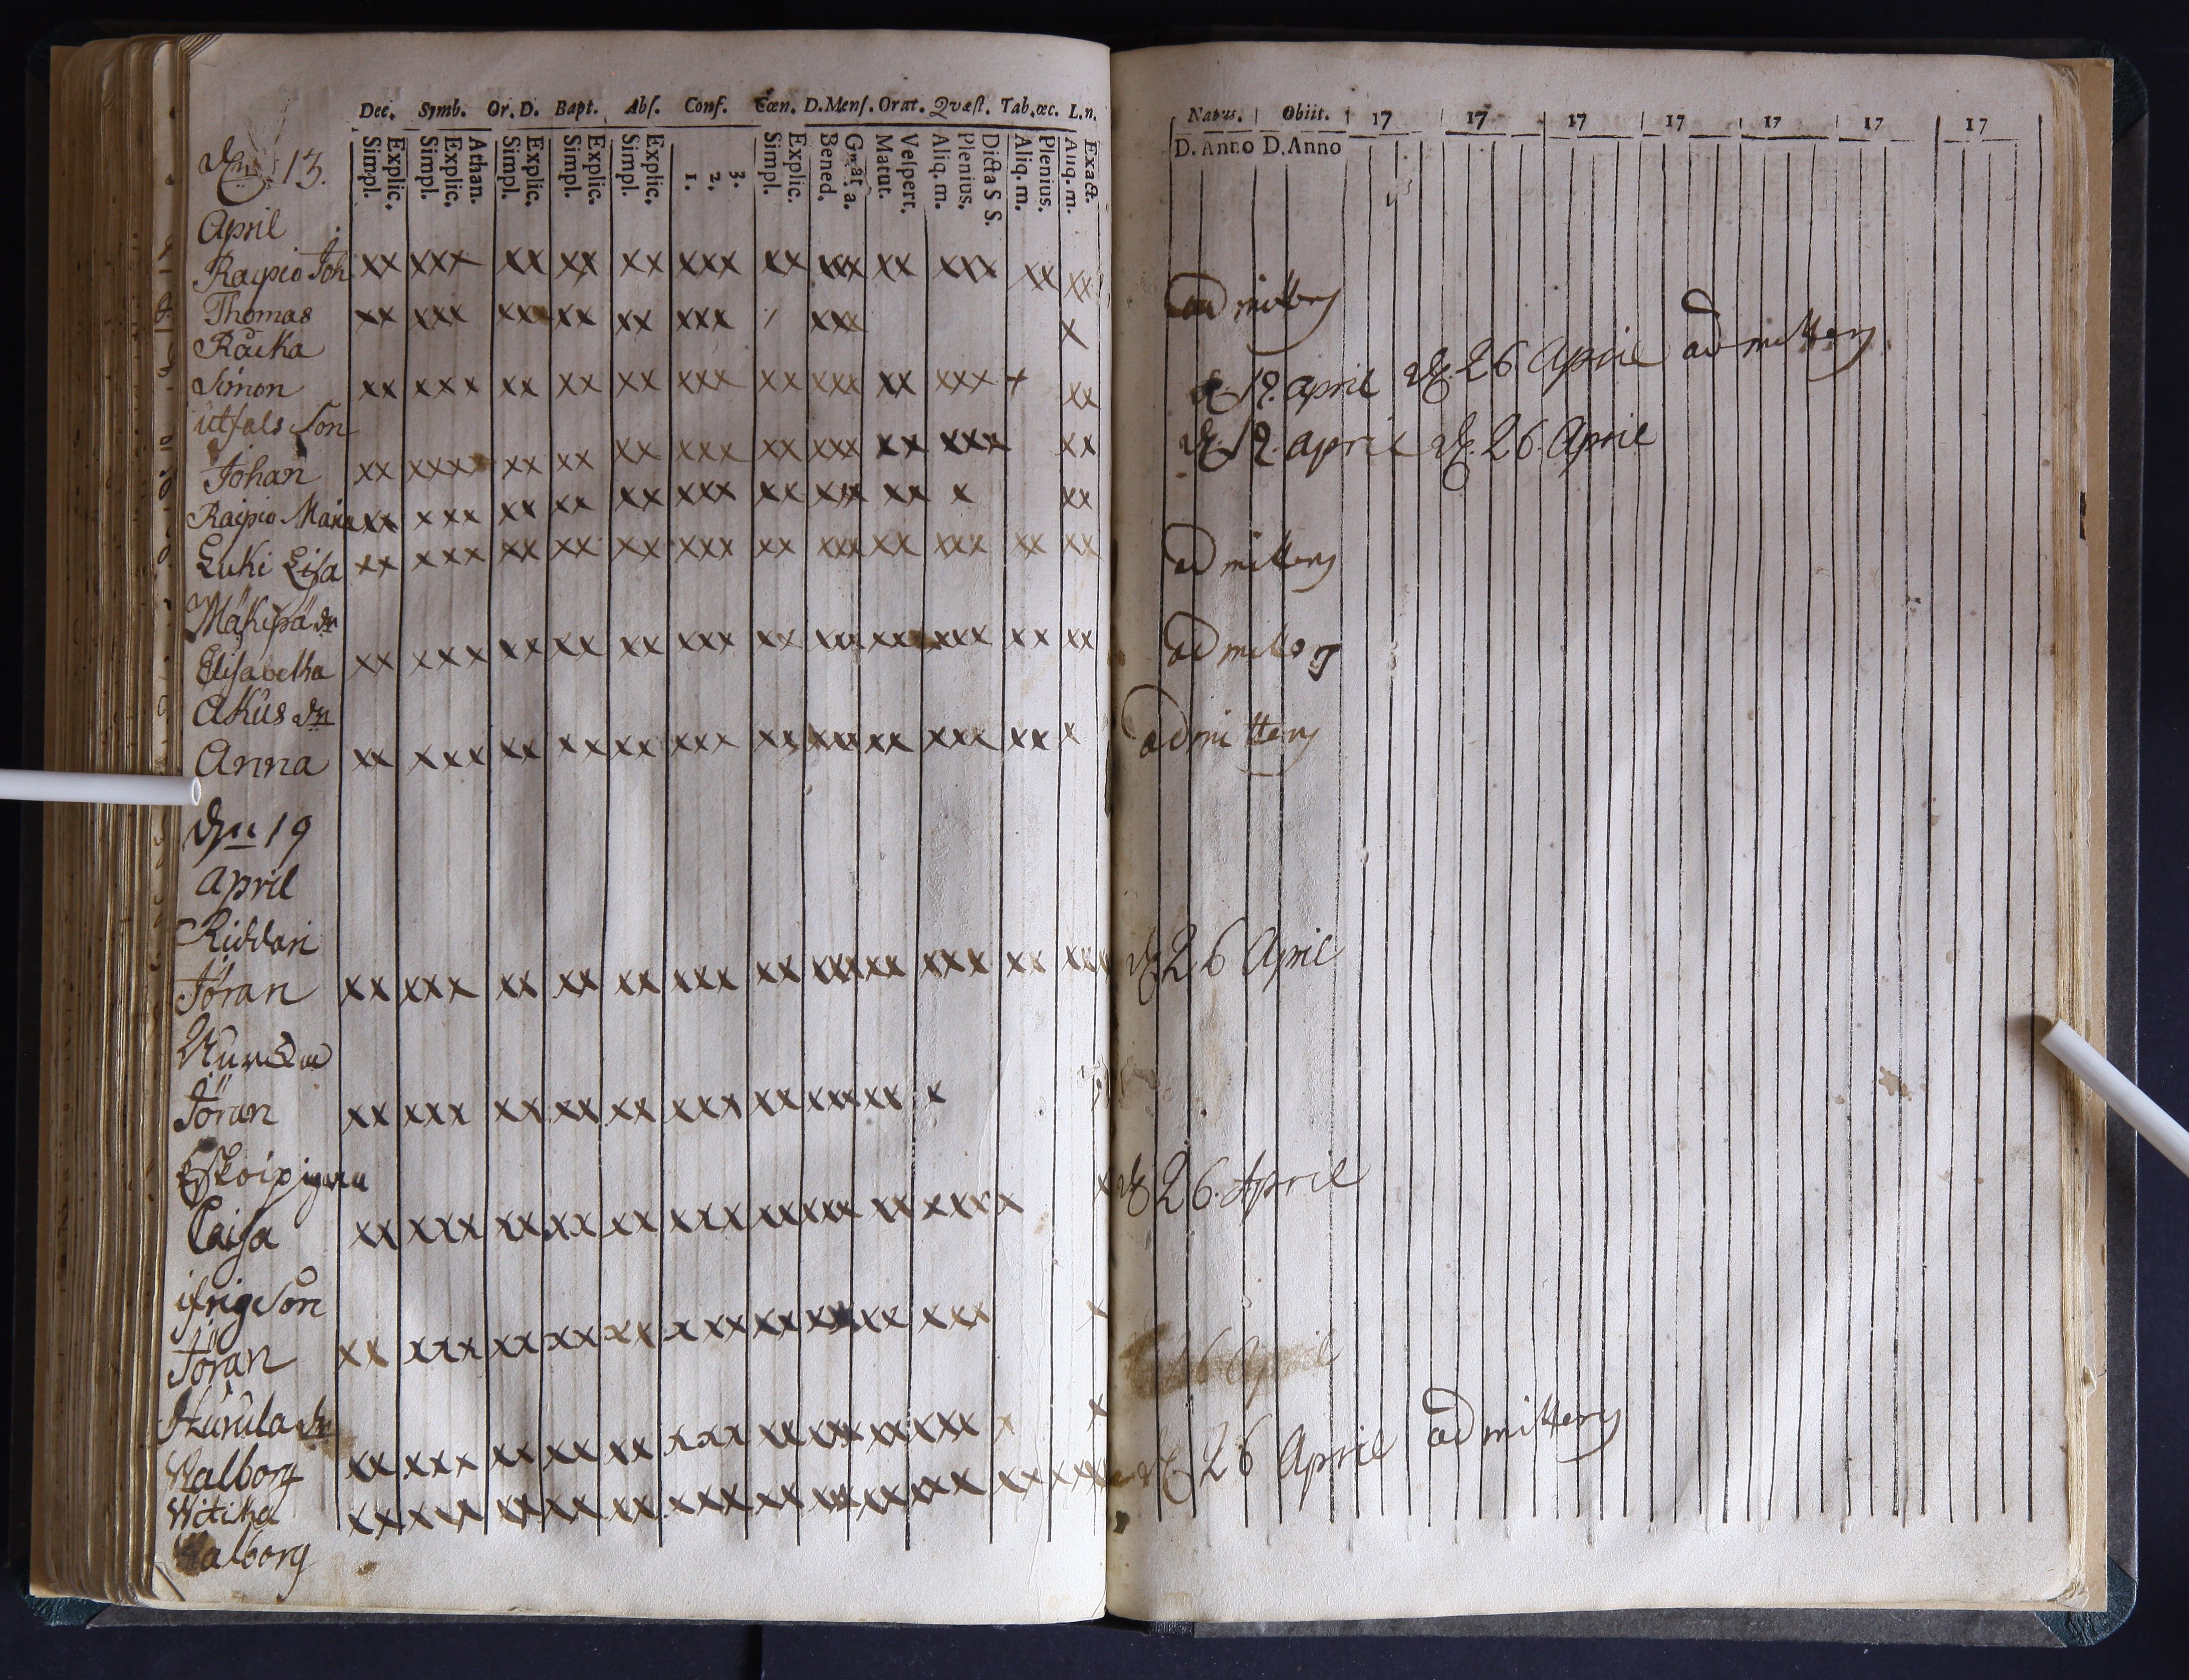 Dec. Symb. Or. D. Bapt. Abs. Conf. Cœn. D. Mens. Orat. Qvæst. Tab. œc. L. n.
Simpl. Explic. Simpl. Explic. Athan. Simpl. Explic. Simpl. Explic. Simpl. Explic. 1. 2. 3. Simpl. Explic. Bened. Grat. a. Matut. Vespert. Aliq. m. Plenius. Dicta S S. Aliq. m. Plenius. Aliq. m. Exact.
13.
April
Raipio Joh xx xxx xx xx xx xxx xx xxx xx xxx xx xx
Thomas xx xxx xx xx xx xxx / xxx x
Räika
Simon xx xxx xx xx xx xxx xx xxx xx xxx x xx
utfals Son
Johan xx xxxx xx xx xx xxx xx xxx xx xxx xx
Raipio Maria xx xxx xx xx xx xxx xx xxx xx x xx
Luki Lisa xx xxx xx xx xx xxx xx xxx xx xxx xx xx
Mäkipä dr
Elisabetha xx xxx xx xx xx xxx xx xxx xx xxx xx xx
Akus dr
Anna xx xxx xx xx xx xxx xx xxx xx xxx xx x
19
April
Riddari
Jöran xx xxx xx xx xx xxx xx xxx xx xxx xx xxx
Jöran xx xxx xx xx xx xxx xx xxx xx x
Caisa xx xxx xx xx xx xxx xx xxx xx xxx x x
ifrig Son
Jöran xx xxx xx xx xx xxx xx xxx xx xxx x
Hurula dr
Walborg xx xxx xx xx xx xxx xx xxx xx xxx x x
Witika xx xxx xx xx xx xxx xx xxx xx xxx xx xxxx
Walborg
Natus. Obiit. 17 17 17 17 17 17 17
D. Anno D. Anno
admitteng
19. april 26 April admitteng
19. april 26. April
admitteng
admitteng
admitteng
26 April
26. April
26 April
26 April admitteng